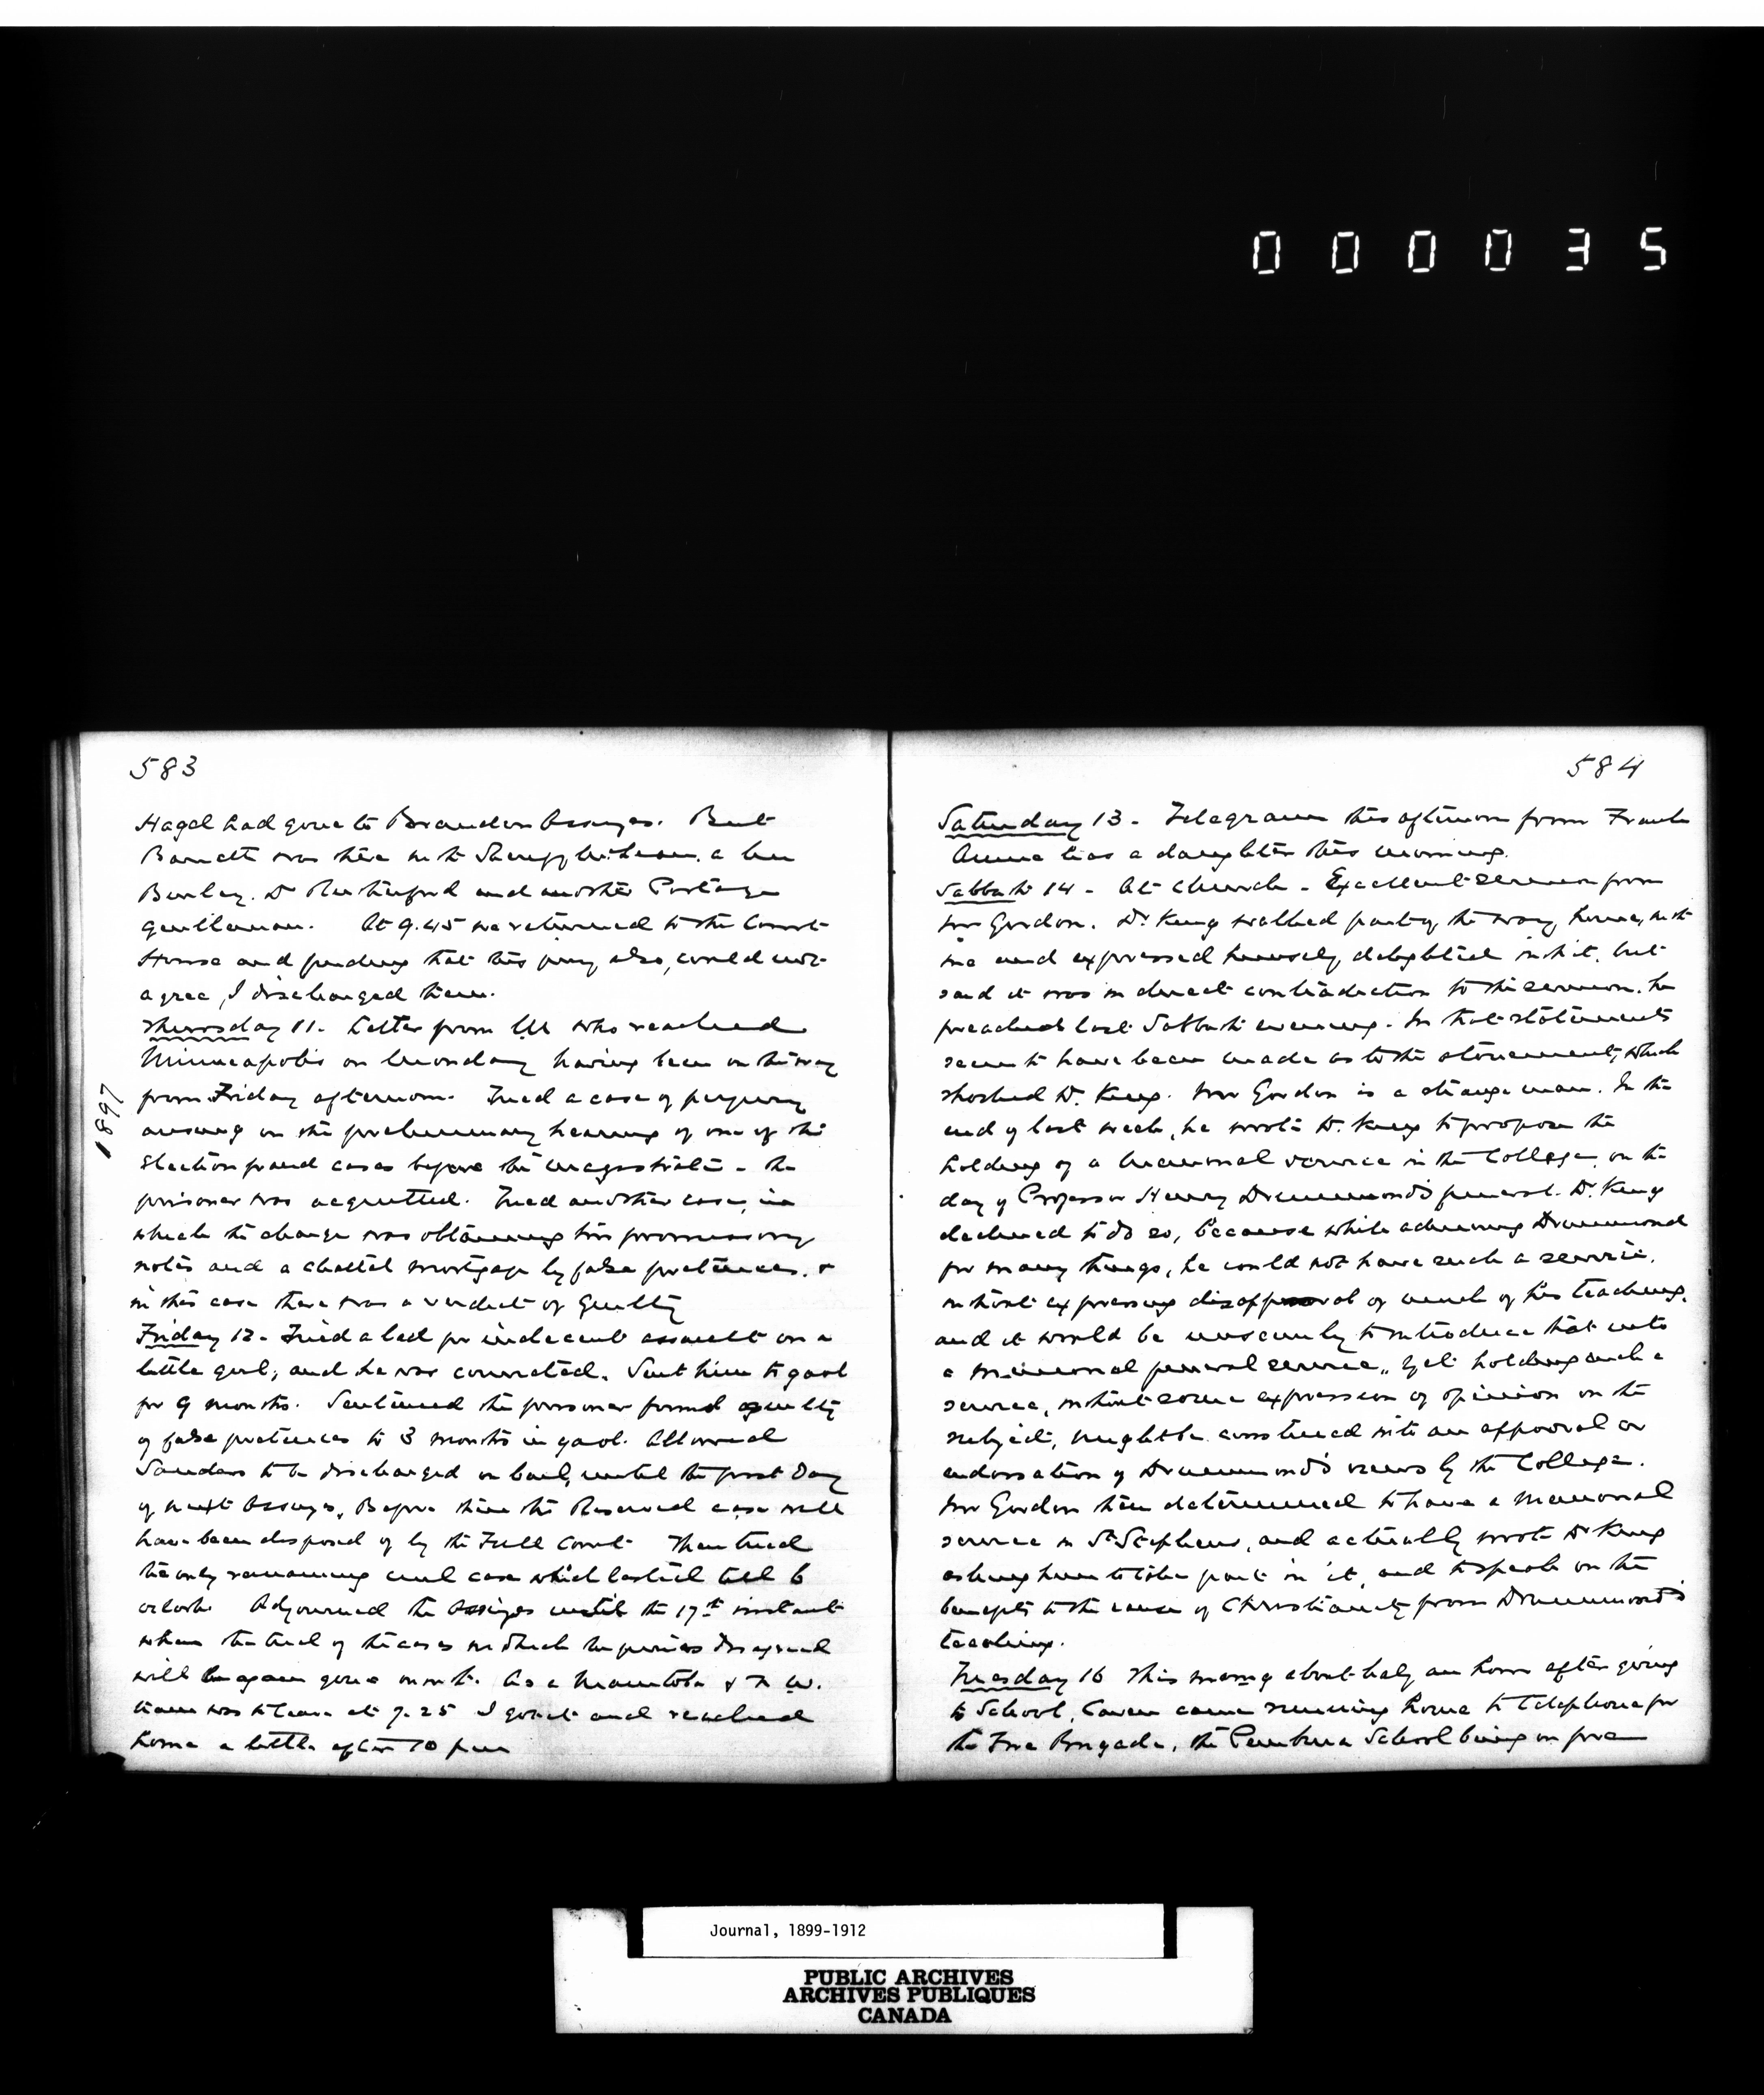 000035
583
Hagel had gone to Brandon Assizes. But
was there with Sheriff a
Dr Rutherford and another Portage
gentleman. At 9.45 we returned to the Court
House and finding that this jury also, could not
agree, I discharged them.
Thursday 11. Letter from who reached
Minneapolis on Monday having been on the way
from Friday afternoon. Tried a case of perjury
arising on the preliminary hearing of one of the
Election fraud cases before the magistrate - the
prisoner was acquitted. Tried another case, in
which the charge was obtaining two promissory
notes and a chattel mortgage by false pretences. &
in this case there was a verdict of Guilty
Friday 12. Tried a lad for indecent assault on a
little girl, and he was convicted. Sent him to gaol
for 9 months. Sentenced the prisoner found guilty
of false pretences to 3 months in gaol. Allowed
Sanders to be discharged on bail, until the first day
of next Assizes, Before then the Reserved case will
have been disposed of by the Full Court. Then tried
the only remaining civil case which lasted till 6
oclock Adjourned the Assizes until the 17th instant
when the trial of the cases in which the juries disagreed
will be again gone on with. As a Manitoba & N W.
train was to leave at 7.25 I got it and reached
home a little after 10 pm
1897
584
Saturday 13 - Telegram this afternoon from Frank
Anna has a daughter this morning.
Sabbath 14 - At church - Excellent sermon from
Mr Gordon. Dr King walked part of the way home, with
me and expressed himself delighted with it, but
said it was in direct contradiction to the sermon, he
preached last Sabbath evening. In that statements
seem to have been made as to the atonement, which
shocked Dr King. Mr Gordon is a strange man. In the
end of last week, he wrote Dr King to propose the
holding of a memorial service in the College, on the
day of Professor Henry Drummond's funeral. Dr King
declined to do so, because while admiring Drummond
for many things, he could not have such a service,
without expressing disapproval of much of his teaching,
and it would be unseemly to introduce that into
a memorial funeral service, yet holding such a
service, without some expression of opinion on the
subject, might be construed into an approval or
endorsation of Drummond's views by the College.
Mr Gordon then determined to have a memorial
service in St Stephens, and actually wrote Dr King
asking him to take part in it, and to speak on the
benefits to the cause of Christianity from Drummond's
teaching.
Tuesday 16 This morng about half an hour after going
to School, Caven came running home to telephone for
the Fire Brigade, the Pembina School being on fire
Journal, 1899-1912
PUBLIC ARCHIVES
ARCHIVES PUBLIQUES
CANADA